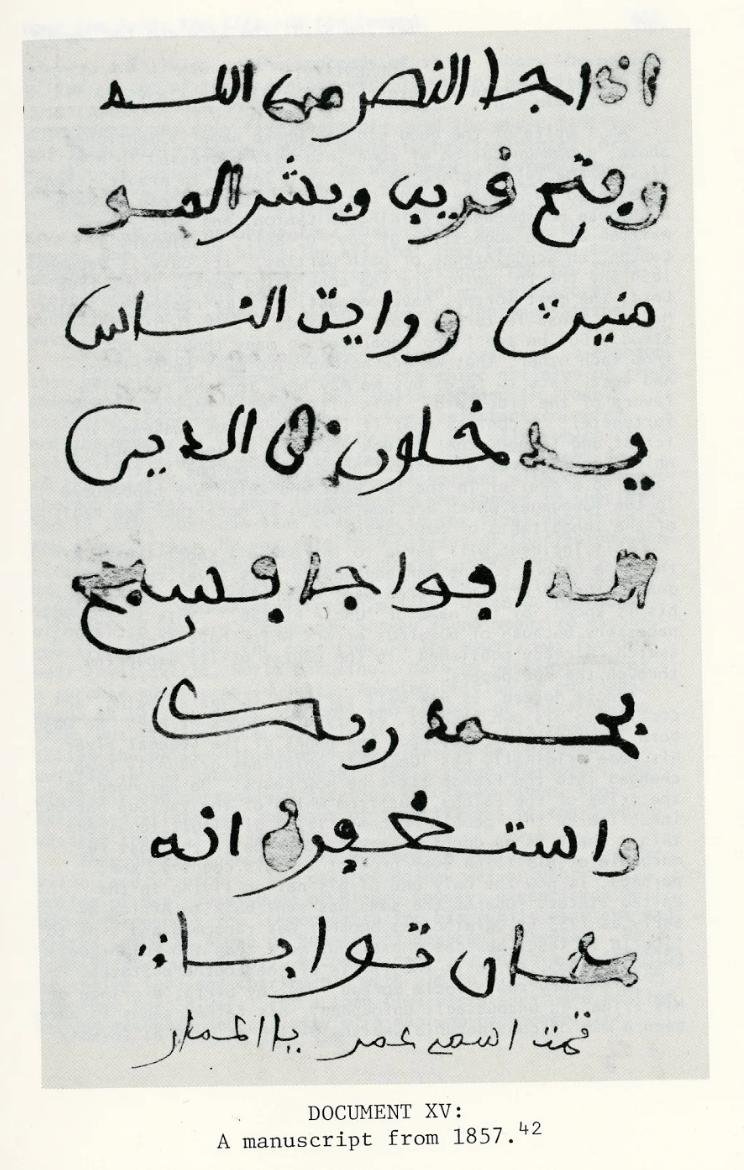 اذا جا النصر من الله
وفتح قريب وبشر المو
منين وورايت الناس
يدخلون في الدين
الله افواجا فسبح
بحمد ربك
واستغفره انه
كان توابا
تمت اسمي عمر
DOCUMENT XV:
A manuscript from 1857.42